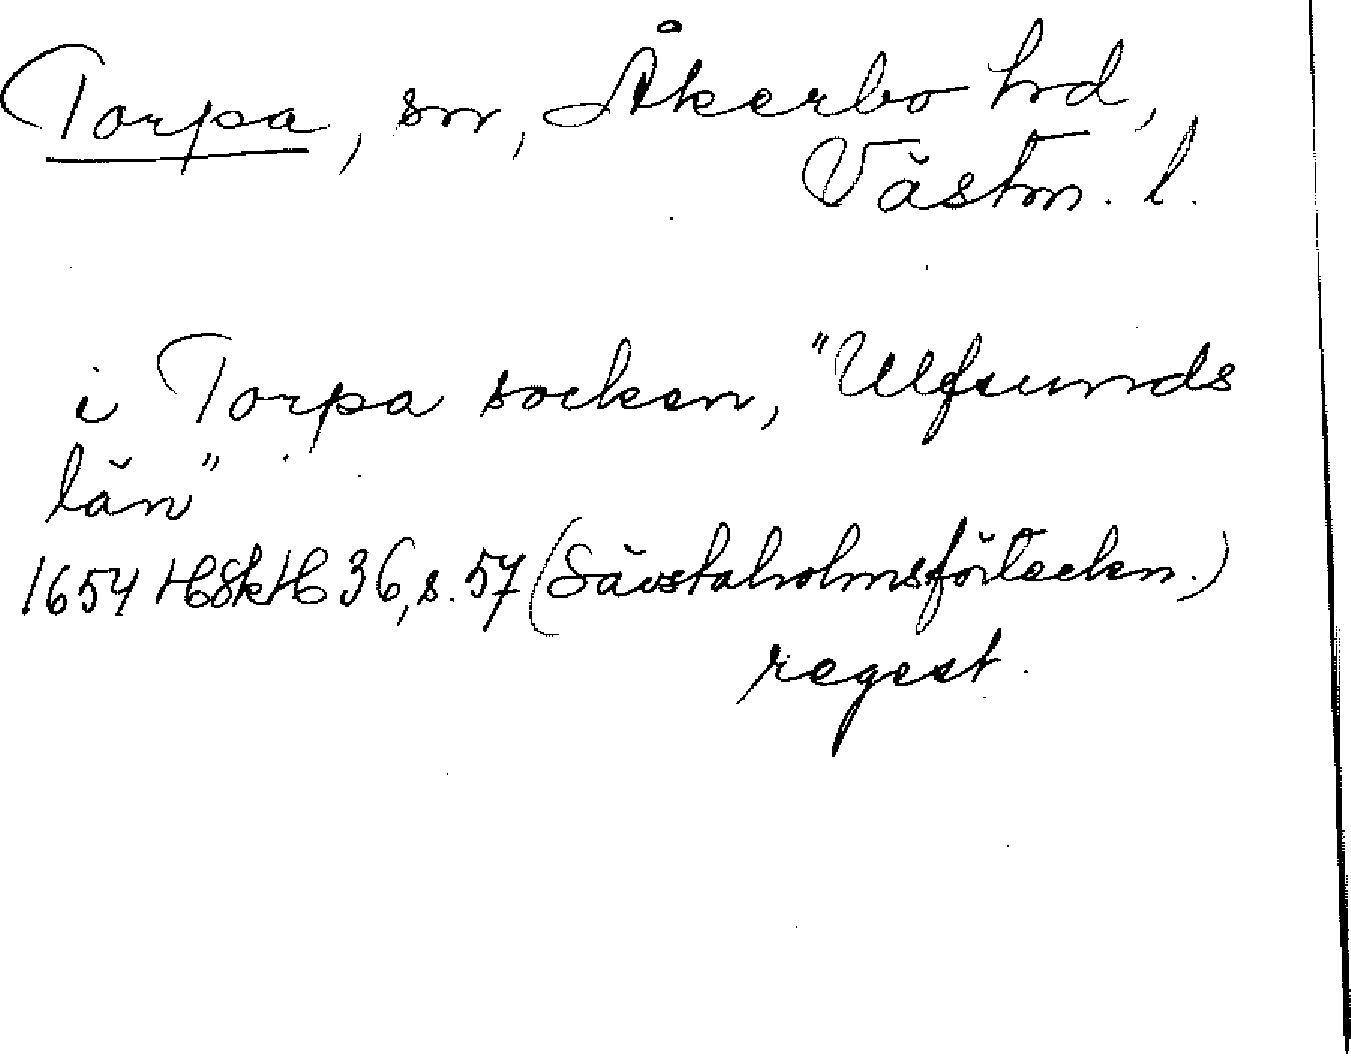 Torpa, sn, Åkerbo hd,
Västm. l.
i Torpa socken, "Ulfsunds
län"
1654 HSkH 36, s. 57 (Sävstaholmsförteckn.)
regest.